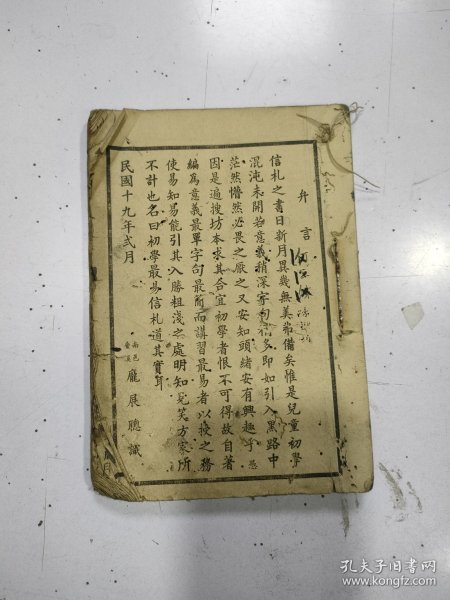 弁言
信札之書日新月異幾無美常備矣惟是兒童初學
混沌未開若意義稍深字句稍多即如引入黑路中
茫然懵然必畏之厭之又安知頭緒安有興趣乎愚
因是遍搜坊本求其合宜初學者恨不可得故自著
編為意義最單字句最簡而講習最易者以授之務
使易知易能引其入勝粗淺之處明知見笑方家所
不計也名曰初學最易信札道其實耳
民國十九年弍月
南邑 龐展聰識
孔夫子旧书网
www.kongfz.com